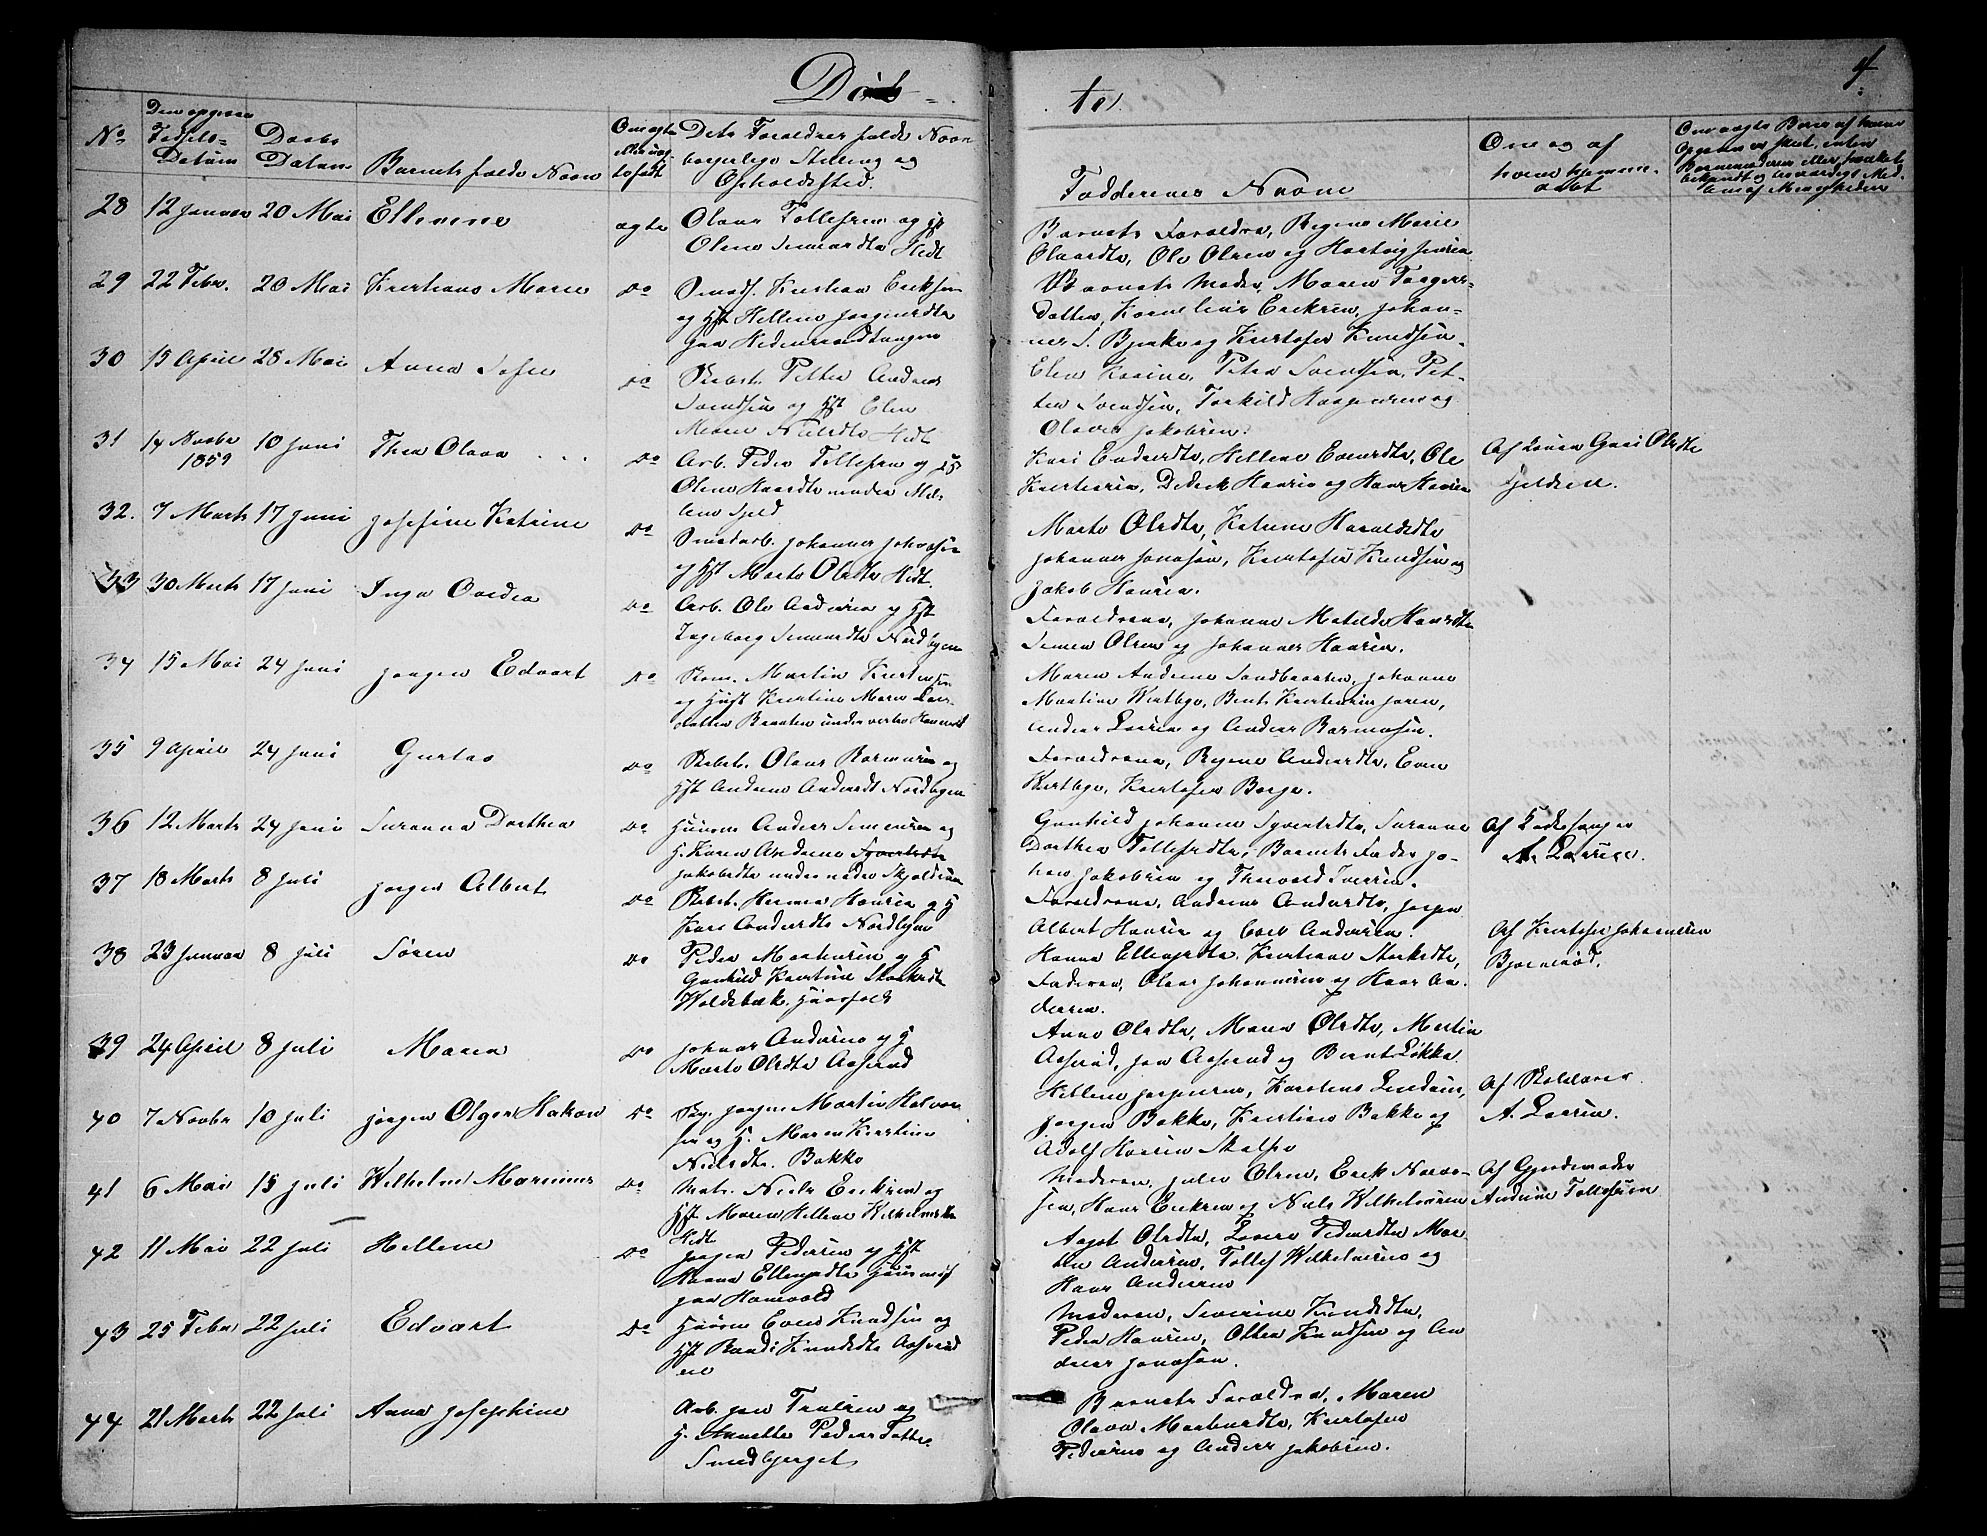 Døb-
te.
4
No
Den opgivne Fødsels-Datum
Daabs Datum
Barnets fulde Navn
Om ægte eller uægte født
Dets Forældres fulde Navn
borgerlige Stilling og
Opholdssted.
Faddernes Navne
Om og af
hvem hjemme-
døbt
28 12 Januar 20 Mai Ellevine ægte Olaus Tollefsen og Hst
Oline Simensdtr Hedt
Barnets Forældre, Regine Marie
Olausdtr, Ole Olsen og Hartvig Simensen
29 22 Febr. 20 Mai Kristiane Marie Do Smeds. Kristian Eriksen
og Hst Hellene Jørgensdtr
paa Hedenstadtangen
Barnets Moder, Maren Torgers-
datter, Kornelius Eriksen, Johan-
nes S. Bjerke og Kristofer Knudsen
30 15 April 28 Mai Anna Sofie Do Skibst. Petter Andreas
Svendsen og Hst Elen
Maren Nielsdtr Hedt
Elen Karine, Petra Svendsen, Pet-
ter Svendsen, Torkild Aasmundsen og
Olaves Jakobsen.
31 14 Novbr 1859 10 Juni Thea Olava Do Arb. Peder Tollefsen og Hst
Oline Hansdtr under Mel-
lem Fjeld
Kari Endresdtr, Hellene Evensdtr, Ole
Kristensen, Didrik Hansen og Hans Hansen
Af Konen Guri Olsdtr
Fjeldsen.
32. 7 Marts 17 Juni Josefine Katrine Do Smedarb. Johannes Johnsen
og Hst Marte Olsdtr Hedt.
Marte Olsdtr, Katrine Haraldsdtr
Johannes Jonasen, Kristofer Knudsen og
Jakob Hansen.
33 30 Marts 17 Juni Inga Ovedia Do Arb. Ole Andersen og Hst
Ingeborg Simensdtr Nordbyen
Forældrene, Johanne Matilde Hansdtr
Simen Olsen og Johannes Hansen.
34 15 Mai 24 Juni Jørgen Edvart Do Kom. Martin Kristensen
og Hust Kristine Maria Lars-
datter Braaten under vestre Hanevold
Maren Andrene Sandbraaten, Johanne
Martine Vestbye, Bent Kristensen Joren,
Anders Larsen og Anders Rasmusen.
35 9 April 24 Juni Gustav Do Skibst. Olaus Rasmusen og
Hst Andrene Andersdt Nordbyen
Forældrene, Regine Andersdtr, Even
Vestbye, Kristofer Borge.
36 12 Marts 24 Juni Susanna Dorthea Do Huusm. Anders Simensen og
H. Karen Andrene Syvertsdtr
Jakobsdtr under nedre Skjoldsum
Gunhild Johanne Syvertsdtr, Susanne
Dorthea Tollefsdtr, Barnets Fader, Jo-
han Jakobsen og Thorvald Iversen.
Af Kirkesanger
A. Larsen.
37 18 Marts 8 Juli Jørgen Albert Do Skibst. Herman Hansen og H
Kari Andersdtr Nordbyen
Forældrene, Andrine Andersdtr, Jørgen
Albert Hansen og Carl Andersen.
38 23 Januar 8 Juli Søren Do Peder Mathisen og H
Gunhild Kristine Størkersdtr
Woldsbæk, Huusfolk
Hanna Ellingsdtr, Kristiane Størkersdtr,
Faderen, Olaus Johannesen og Hans An-
dersen.
Af Kristofer Johannesen
Bjørnerød.
39 24 April 8 Juli Maren Do Johnas Andersen og H
Marte Olsdtr Aasrud
Anne Olsdtr, Maren Olsdtr, Martin
Aasrud, Jon Aasrud og Bernt Løkke.
40 7 Novbr 10 Juli Jørgen Olger Hakon Do Jørgen Martin Halvor-
sen og H. Maren Kristine
Nielsdtr. Bakke
Helline Jørgensen, Karoline Lindsen,
Jørgen Bakke, Kristian Bakke og
Adolf Hansen Skalpe
Af Skolelærer
A. Larsen.
41 6 Mai 15 Juli Wilhelm Marinius Do Mats. Niels Eriksen og
Hst Maren Hellene Wilhelmsdtr
Hedt
Moderen, Julie Olsen, Erik Narve-
sen, Hans Eriksen og Niels Wilhelmsen
Af Gjordemoder
Andrine Tollefsen
42 11 Mai 22 Juli Hellene Do Jørgen Pedersen og Hst
Hanna Ellingsdtr Huusmd
paa Hanevold
Aagot Olsdtr, Lovise Pedersdtr, Mar-
tin Andersen, Tollef Wilhelmsen og
Hans Andersen
43 25 Febr 22 Juli Edvart Do Huusm. Even Knudsen og
Hst Randi Knudsdtr Aasrud
eie
Moderen, Severine Knudsdtr,
Peder Hansen, Otter Knudsen og An
dreas Jonasen.
44 21 Marts 22 Juli Anna Josephine Do Arb. Jon Trulsen og
H. Annette Peders Datter
Smedbjerget
Barnets Forældre, Maren
Olava Mathisdtr, Kristofer
Pedersen og Anders Jakobsen.